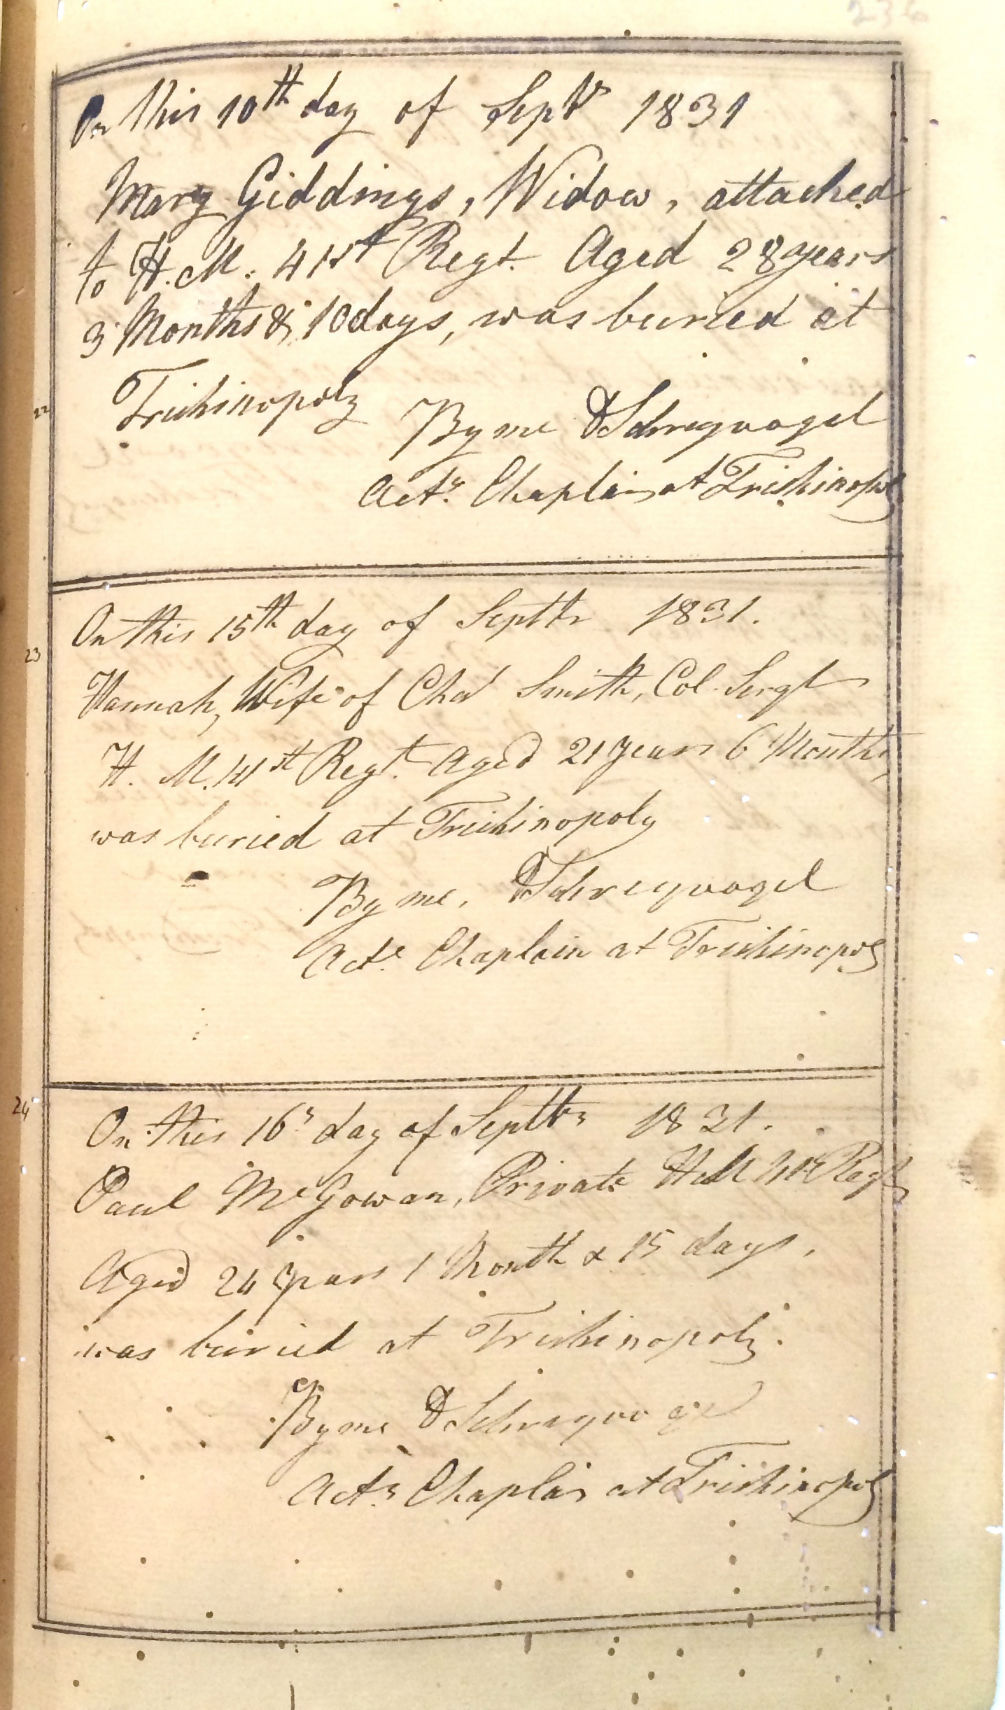 236
On this 10th day of Septr 1831
Mary Giddings, Widow, attached
to H. M. 41st Regt. Aged 28 years
3 Months & 10 days, was buried at
22
Trichinopoly
By me D Schreyvogel
Actg Chaplain at Trichinopoly
On this 15th day of Septbr 1831.
23
Hannah, Wife of Chas Smith, Col. Sergt
H. M. 41st Regt. Aged 21 years 6 Months,
was buried at Trichinopoly
By me, D Schreyvogel
Actg Chaplain at Trichinopoly
24
On this 16th day of Septbr 1831.
Paul McGowan, Private H M 41st Regt
Aged 24 years 1 Month & 15 days,
was buried at Trichinopoly.
By me D Schreyvogel
Actg Chaplain at Trichinopoly